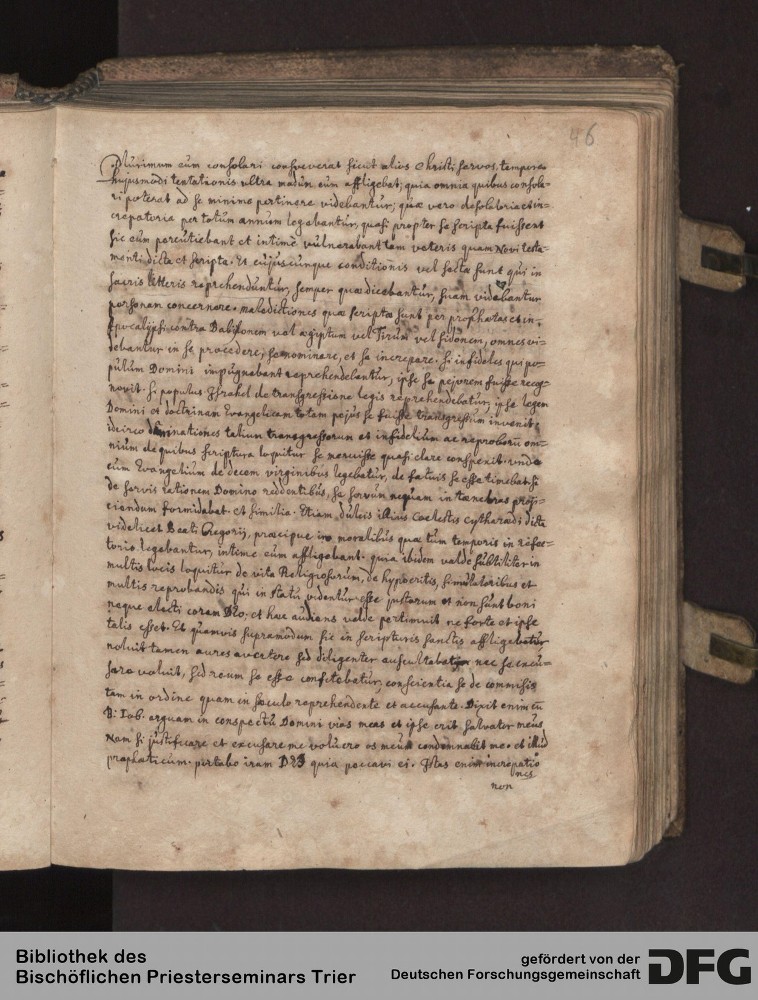 46
Plurimum eum consolari consueverat sicut alios Christi servos, tempore
hujusmodi tentationis ultra modum eum affligebat, quia omnia quibus consola-
ri poterat ad se minime pertinere videbantur; quæ vero desolatoria et in-
crepatoria per totum annum legebantur, quasi propter se scripta fuissent
sic eum percutiebant et intimè vulnerabant tam veteris quam Novi testa-
menti dicta et scripta. Et cujuscunque conditionis vel sectæ sunt qui in
sacris litteris reprehenduntur, semper quæ dicebantur, suam videbantur
personam concernere. maledictiones quæ scriptæ sunt per prophetas et in
Apocalypsi contra Babylonem vel ægiptum vel Tirum vel sidonem, omnes vi-
debantur in se procedere, se nominare, et se increpare. si infideles qui po-
pulum Domini impugnabant reprehendebantur, ipse se pejorem fuisse recog-
novit. si populus Israhel de transgressione legis reprehendebatur, ipse legem
Domini et doctrinam Evangelicam totam pejus se fuisse transgressum invenit,
idcirco damnationes talium transgressorum et infidelium ac reproborum om-
nium de quibus scriptura loquitur se meruisse quasi clare conspexit. unde
cum Evangelium de decem virginibus legebatur, de fatuis se esse timebat, si
de servis rationem Domino reddentibus, se servum nequam in tenebras proji-
ciendum formidabat. et similia. Etiam dulcis illius Coelestis cytharædi dicta
videlicet Beati Gregorij, præcipue in moralibus quæ tum temporis in refec-
torio legebantur, intime eum affligebant. quia ibidem valde subtiliter in
multis locis loquitur de vita Religiosorum, de hypocritis, simulatoribus et
multis reprobandis qui in statu videntur esse justorum et non sunt boni
neque electi coram Deo; et hæc audiens valde pertimuit ne forte et ipse
talis esset. Et quamvis supramodum sic in scripturis sanctis affligebatur
noluit tamen aures avertere sed diligenter auscultabat nec se excu-
sare voluit, sed reum se esse confitebatur, conscientia se de commissis
tam in ordine quam in sæculo reprehendente et accusante. Dixit enim cu
B: Iob. arguam in conspectu Domini vias meas et ipse erit salvator meus
Nam si justificare et excusare me voluero os meum condemnabit me. et illud
propheticum. portabo iram DEI quia peccavi ei. Istas enim increpatio
nes
non
Bibliothek des
Bischöflichen Priesterseminars Trier
gefördert von der
Deutschen Forschungsgemeinschaft
DFG